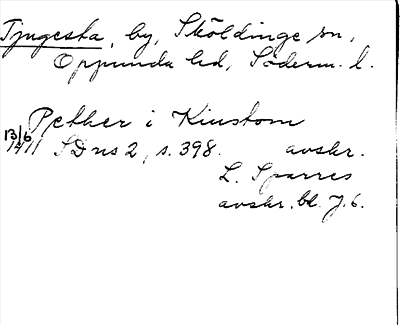 Tjugesta, by, Sköldinge sn,
Oppunda hd, Söderm. l.
Pether i Kiustom
13/6 1411 SD ns 2, s. 398. avskr.
L. Sparres
avskr. bl. J. 6.